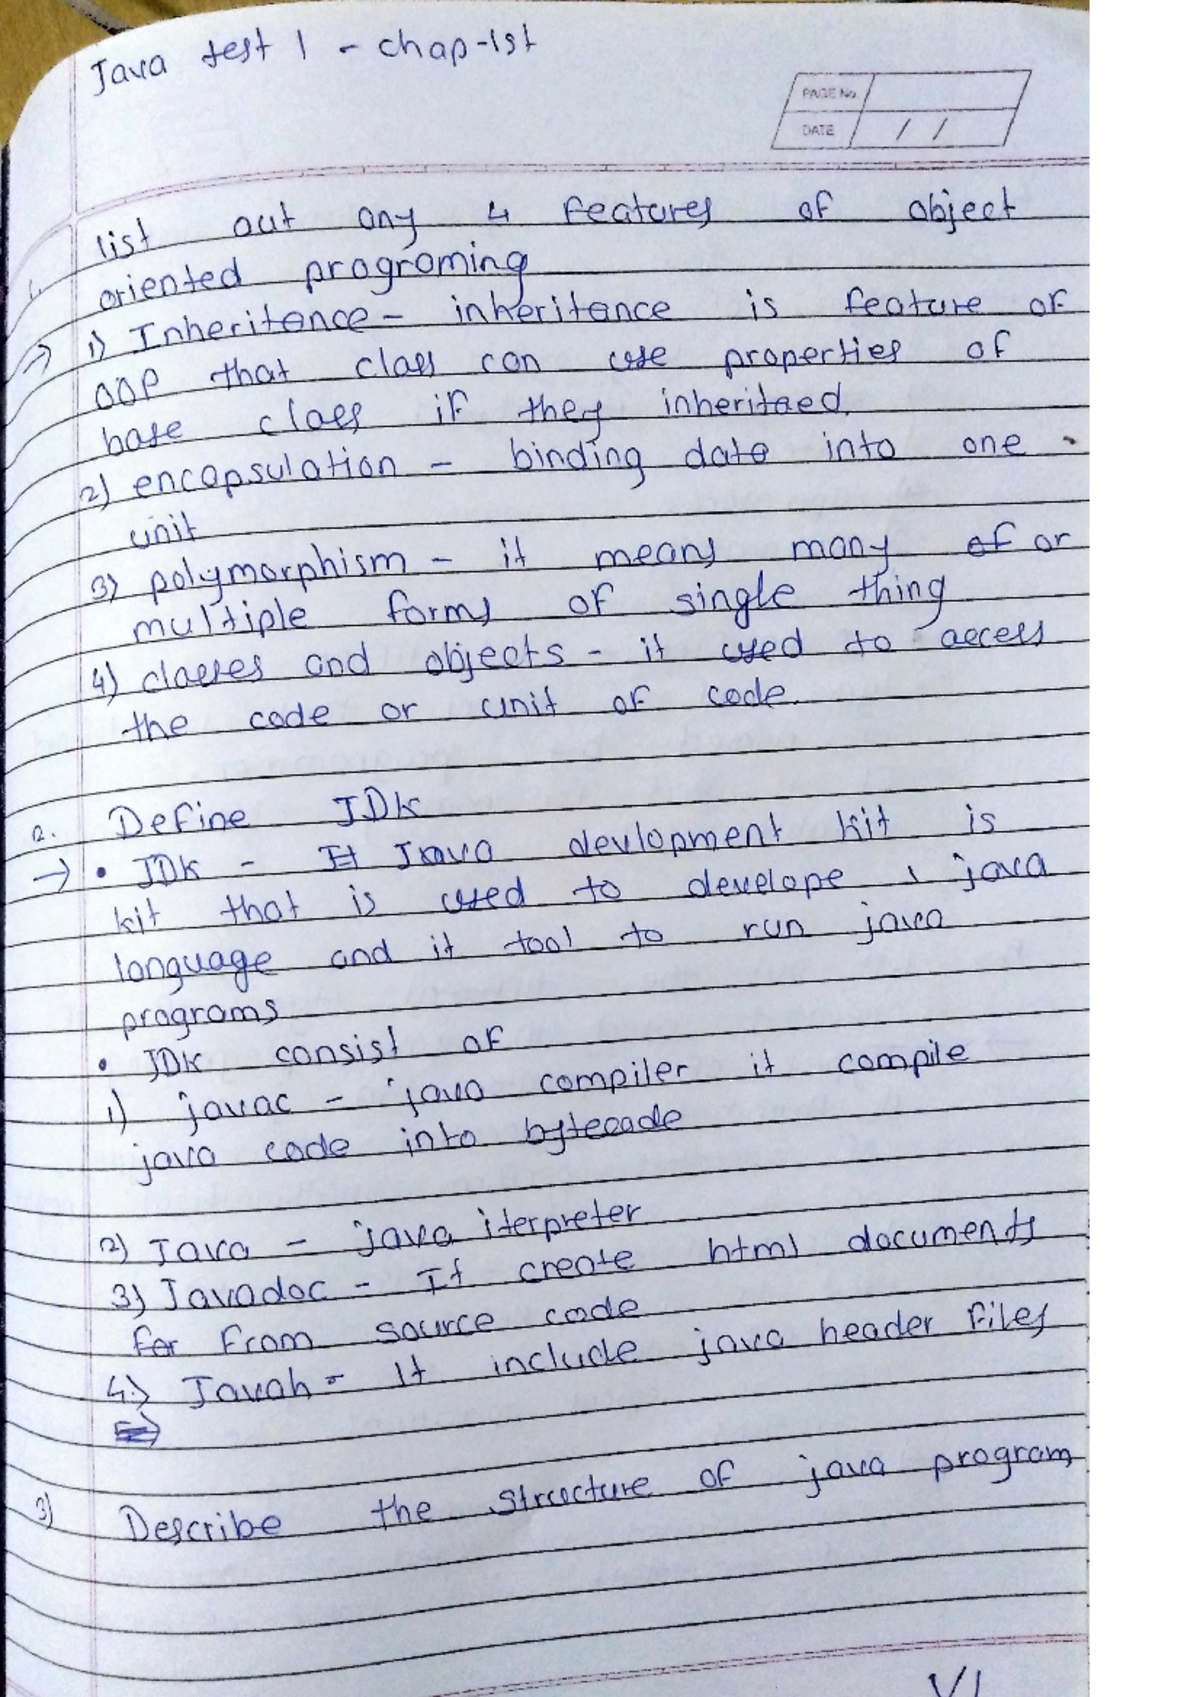 Java test 1 - chap-1st
PAGE No.
DATE / /
1. list out any 4 features of object
oriented programing
→ 1) Inheritance - inheritance is feature of
OOP that class can use properties of
base class if they inheritaed.
2) encapsulation - binding data into one
unit
3) polymorphism - it means many of or
multiple forms of single thing
4) classes and objects - it used to access
the code or unit of code.
2. Define JDK
→ • JDK - It Java devlopment kit is
kit that is used to develope java
language and it tool to run java
programs
• JDK consist of
1) javac - java compiler it compile
java code into bytecode
2) Java - java iterpreter
3) Javadoc - It create html documents
for from source code
4.) Javah - It include java header files
3) Describe the structure of java program